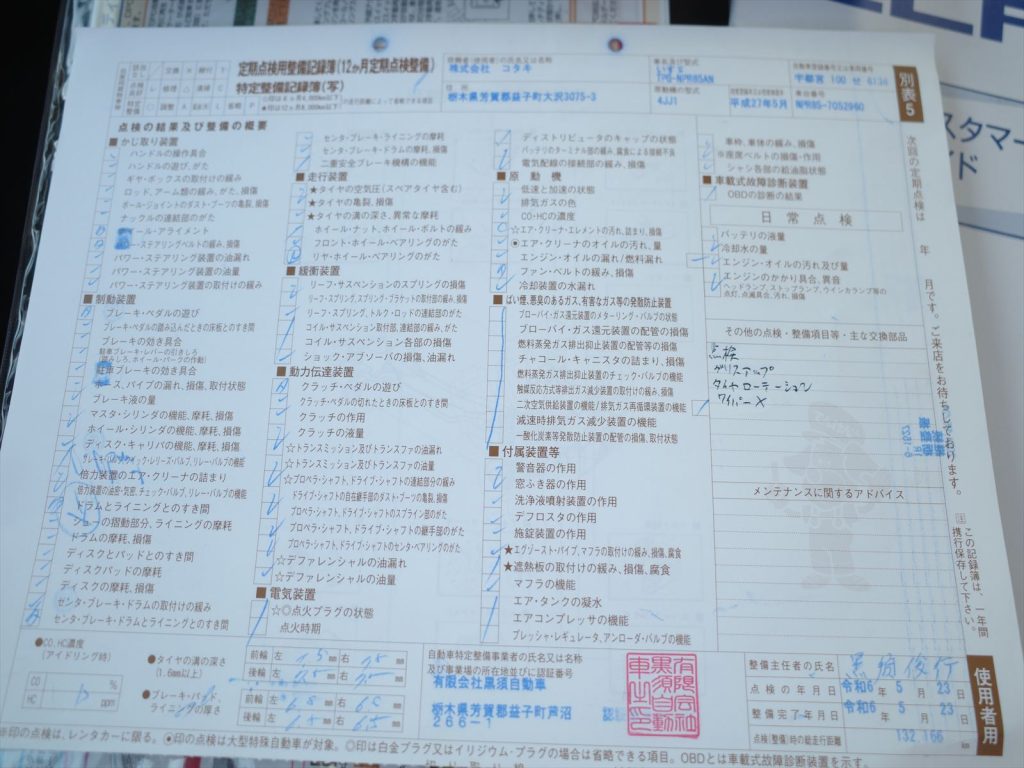 定期点検用整備記録簿(12か月定期点検整備)
特定整備記録簿(写)
株式会社 コタキ
栃木県芳賀郡益子町大沢3075-3
いすゞ
TPG-NPR85AN
4JJ1
平成27年5月
NPR85-7052960
別表5
点検の結果及び整備の概要
■かじ取り装置
ハンドルの操作具合
ハンドルの遊び、がた
ギヤ・ボックスの取付けの緩み
ロッド、アーム類の緩み、がた、損傷
ボール・ジョイントのダスト・ブーツの亀裂、損傷
ナックルの連結部のがた
ホイール・アライメント
パワー・ステアリングベルトの緩み、損傷
パワー・ステアリング装置の油漏れ
パワー・ステアリング装置の油量
パワー・ステアリング装置の取付けの緩み
■制動装置
ブレーキ・ペダルの遊び
ブレーキ・ペダルの踏み込んだときの床板とのすき間
ブレーキの効き具合
駐車ブレーキの効き具合
ホース、パイプの漏れ、損傷、取付状態
ブレーキ液の量
マスタ・シリンダの機能、摩耗、損傷
ホイール・シリンダの機能、摩耗、損傷
ディスク・キャリパの機能、摩耗、損傷
倍力装置のエア・クリーナの詰まり
倍力装置の油密・気密、チェック・バルブ、リレー・バルブの機能
ドラムとライニングとのすき間
シューの摺動部分、ライニングの摩耗
ドラムの摩耗、損傷
ディスクとパッドとのすき間
ディスクパッドの摩耗
ディスクの摩耗、損傷
センタ・ブレーキ・ドラムの取付けの緩み
センタ・ブレーキ・ドラムとライニングとのすき間
センタ・ブレーキ・ライニングの摩耗
センタ・ブレーキ・ドラムの摩耗、損傷
二重安全ブレーキ機構の機能
■走行装置
★タイヤの空気圧(スペアタイヤ含む)
★タイヤの亀裂、損傷
★タイヤの溝の深さ、異常な摩耗
ホイール・ナット、ホイール・ボルトの緩み
フロント・ホイール・ベアリングのがた
リヤ・ホイール・ベアリングのがた
■緩衝装置
リーフ・サスペンションのスプリングの損傷
リーフ・スプリング、スプリング・ブラケットの取付部の緩み、損傷
リーフ・スプリング、トルク・ロッドの連結部のがた
コイル・サスペンション取付部、連結部の緩み、がた
コイル・サスペンション各部の損傷
ショック・アブソーバの損傷、油漏れ
■動力伝達装置
クラッチ・ペダルの遊び
クラッチ・ペダルの切れたときの床板とのすき間
クラッチの作用
クラッチの液量
☆トランスミッション及びトランスファの油漏れ
☆トランスミッション及びトランスファの油量
☆プロペラ・シャフト、ドライブ・シャフトの連結部の緩み
ドライブ・シャフトの自在継手部のダスト・ブーツの亀裂、損傷
プロペラ・シャフト、ドライブ・シャフトのスプライン部のがた
プロペラ・シャフト、ドライブ・シャフトの継手部のがた
プロペラ・シャフト、ドライブ・シャフトのセンタ・ベアリングのがた
☆デファレンシャルの油漏れ
☆デファレンシャルの油量
■電気装置
☆◎点火プラグの状態
点火時期
ディストリビュータのキャップの状態
バッテリのターミナル部の緩み、腐食による接続不良
電気配線の接続部の緩み、損傷
■原動機
低速と加速の状態
排気ガスの色
CO・HCの濃度
☆エア・クリーナ・エレメントの汚れ、詰まり、損傷
◉エア・クリーナのオイルの汚れ、量
エンジン・オイルの漏れ/燃料漏れ
ファン・ベルトの緩み、損傷
冷却装置の水漏れ
■ばい煙、悪臭のあるガス、有害なガス等の発散防止装置
ブローバイ・ガス還元装置のメターリング・バルブの状態
ブローバイ・ガス還元装置の配管の損傷
燃料蒸発ガス排出抑止装置の配管等の損傷
チャコール・キャニスタの詰まり、損傷
燃料蒸発ガス排出抑止装置のチェック・バルブの機能
触媒反応方式等排出ガス減少装置の取付けの緩み、損傷
二次空気供給装置の機能/排気ガス再循環装置の機能
減速時排気ガス減少装置の機能
一酸化炭素等発散防止装置の配管の損傷、取付状態
■付属装置等
警音器の作用
窓ふき器の作用
洗浄液噴射装置の作用
デフロスタの作用
施錠装置の作用
★エグゾースト・パイプ、マフラの取付けの緩み、損傷、腐食
★遮熱板の取付けの緩み、損傷、腐食
マフラの機能
エア・タンクの凝水
エアコンプレッサの機能
プレッシャ・レギュレータ、アンローダ・バルブの機能
車枠、車体の緩み、損傷
※座席ベルトの損傷・作用
シャシ各部の給油脂状態
■車載式故障診断装置
OBDの診断の結果
日常点検
バッテリの液量
冷却水の量
エンジン・オイルの汚れ及び量
エンジンのかかり具合、異音
ヘッドランプ、ストップランプ、ウインカランプ等の
点灯、点滅具合、汚れ、損傷
その他の点検・整備項目等・主な交換部品
点検
グリスアップ
タイヤローテーション
ワイパー×
メンテナンスに関するアドバイス
次回の定期点検は 年 月です。ご来店をお待ちしております。
この記録簿は、一年間
携行保存して下さい。
●CO、HC濃度
(アイドリング時)
CO %
HC ppm
●タイヤの溝の深さ
(1.6mm以上)
●ブレーキ・パッド、
ライニングの厚さ
前輪 左 右 mm
後輪 左 右 mm
前輪 左 右 mm
後輪 左 右 mm
自動車特定整備事業者の氏名又は名称
及び事業場の所在地並びに認証番号
有限会社黒須自動車
栃木県芳賀郡益子町芦沼
266-1
整備主任者の氏名
点検の年月日 令和6年5月23日
整備完了年月日 令和6年5月23日
点検(整備)時の総走行距離 132,166 km
使用者用
※印の点検は、レンタカーに限る。◉印の点検は大型特殊自動車が対象。◎印は白金プラグ又はイリジウム・プラグの場合は省略できる項目。OBDとは車載式故障診断装置を示す。